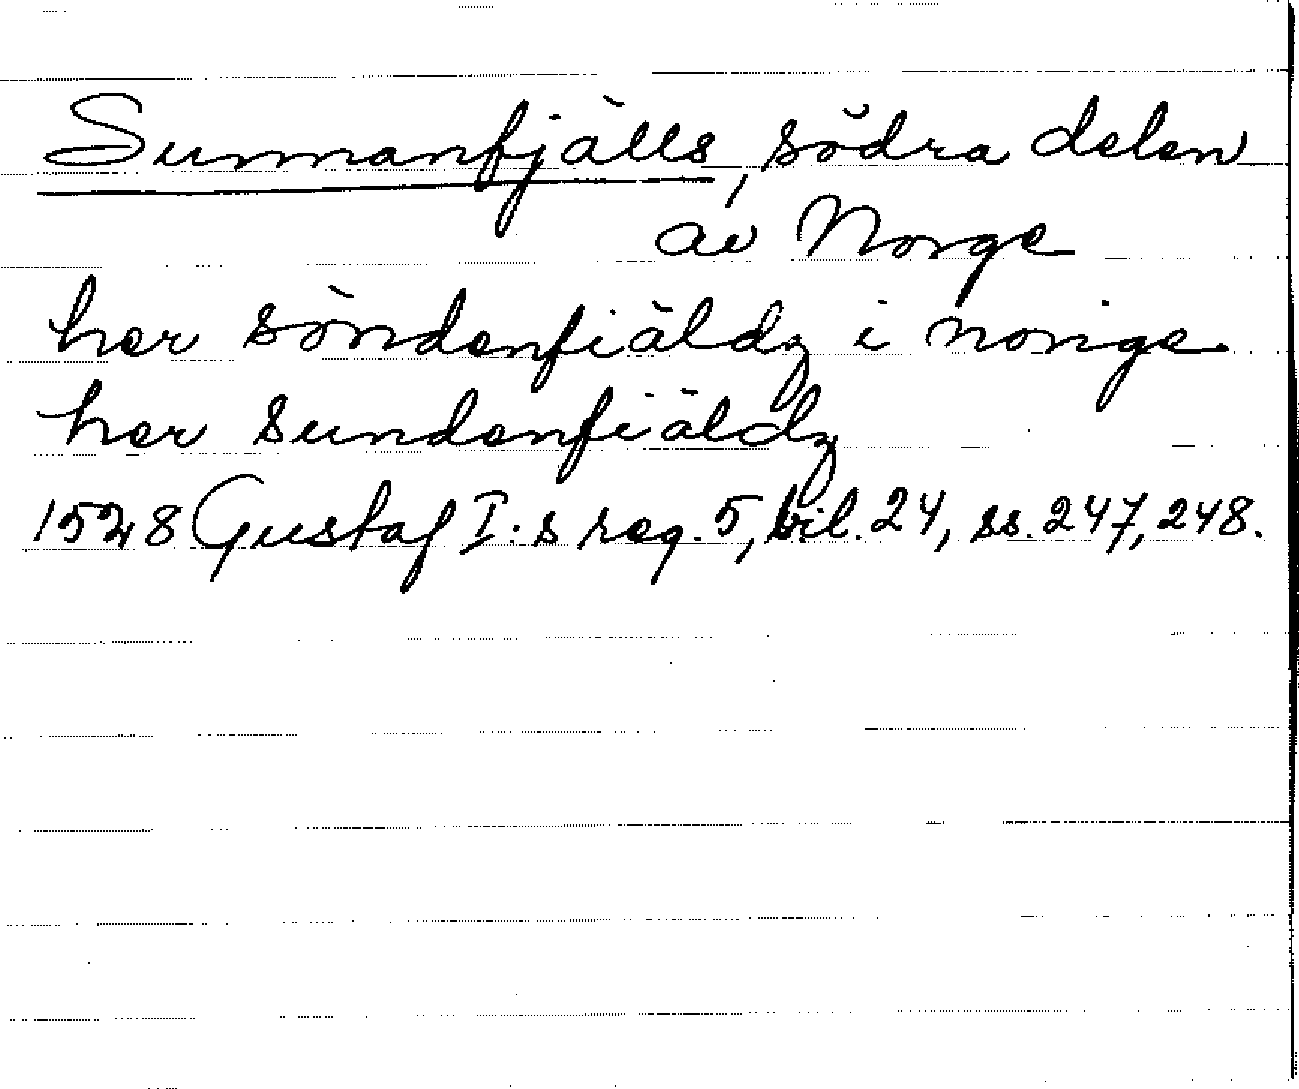 Sunnanfjälls, södra delen
av Norge
her söndenfiäldz i norige
her sundenfiäldz
1528 Gustaf I:s reg. 5, bil. 24, ss. 247, 248.